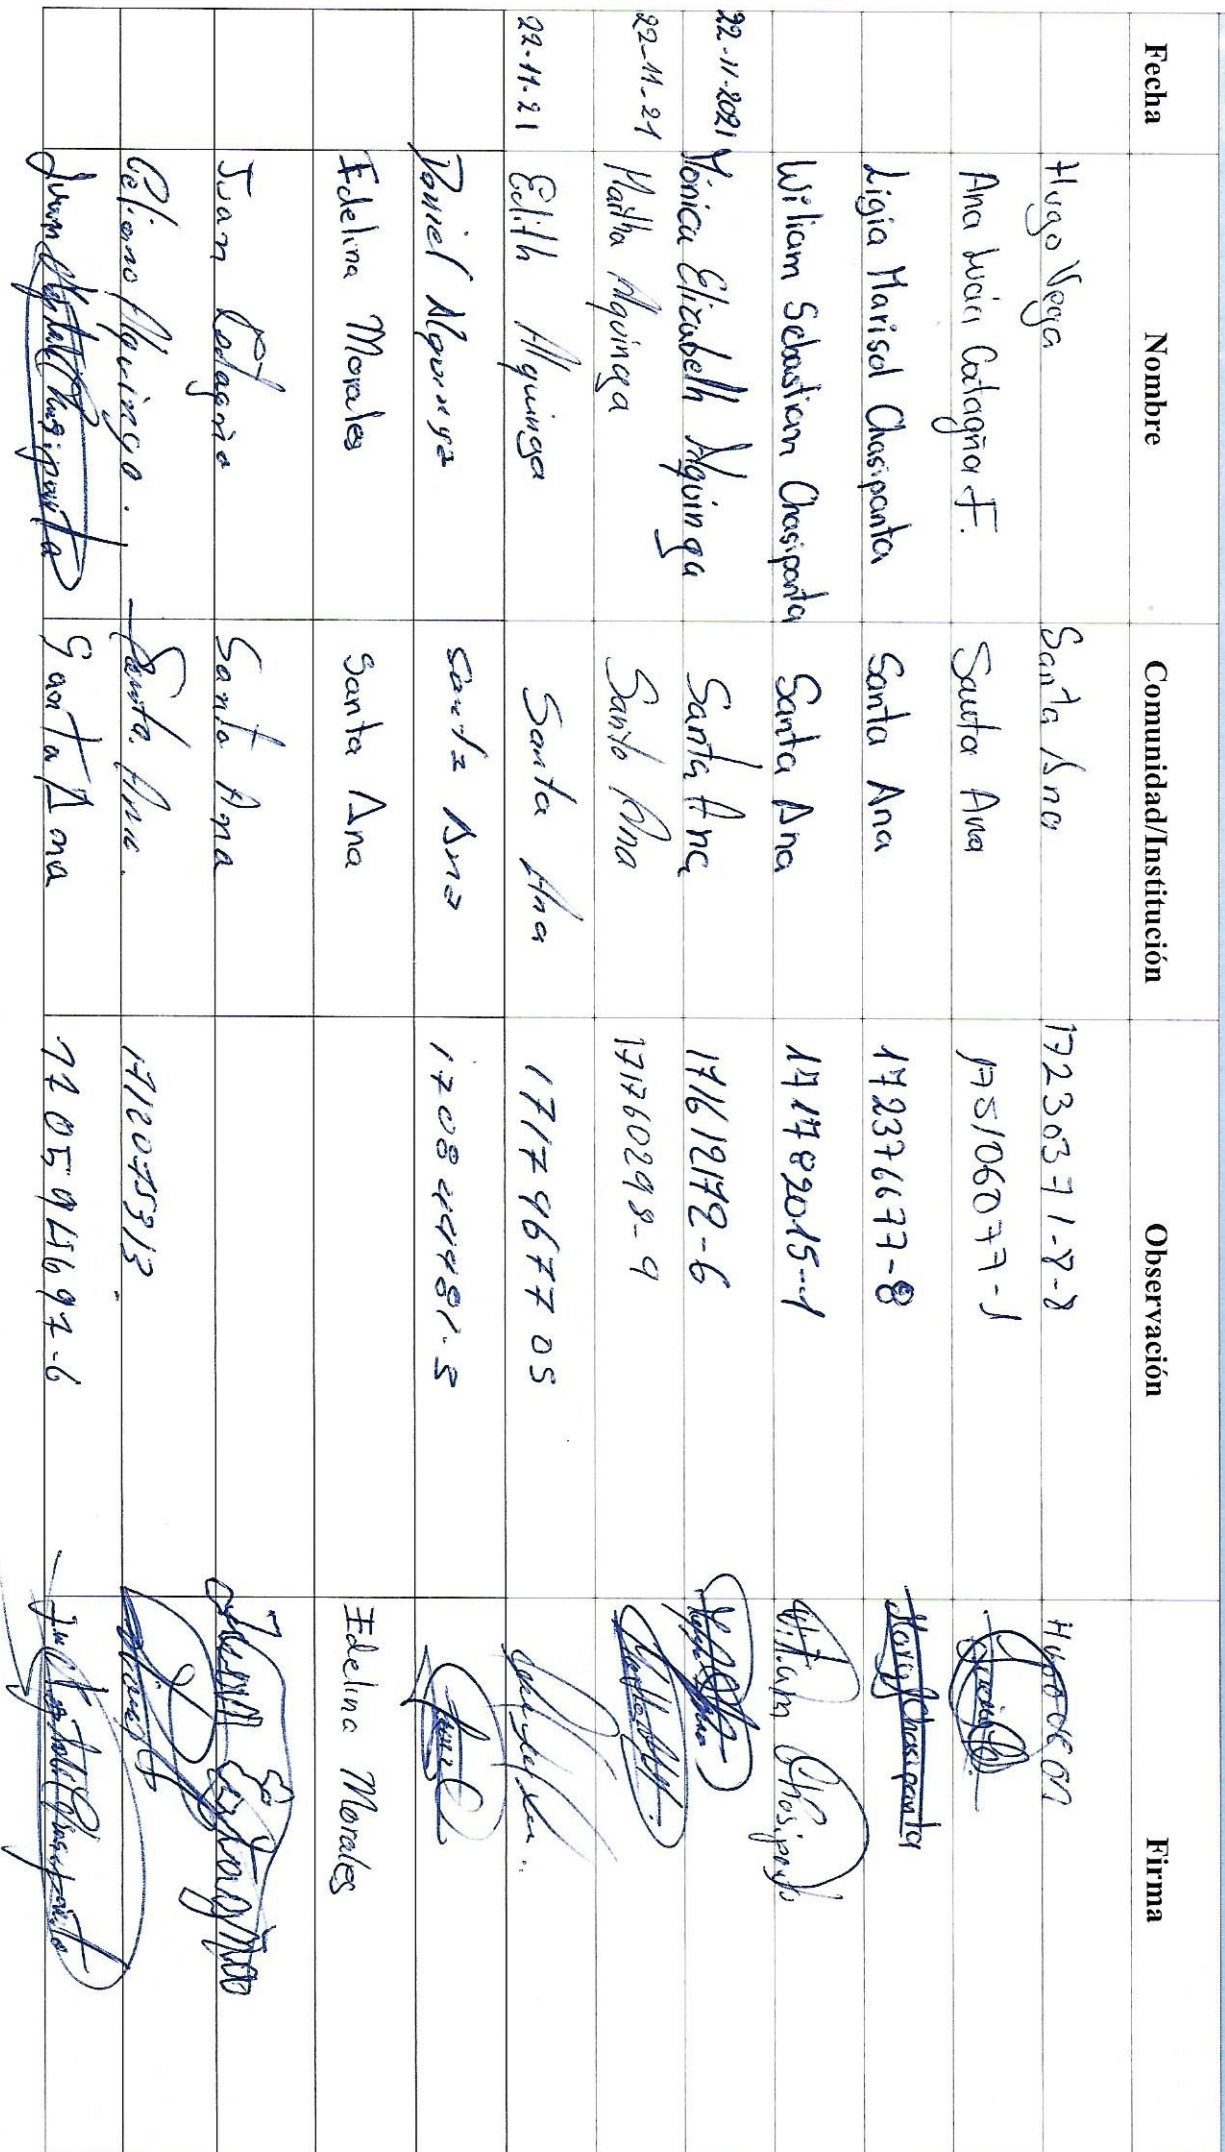 Fecha Nombre Comunidad/Institución Observación Firma
Hugo Vega Santa Ana 17230371-8-8
Ana Lucía Catagña F. Santa Ana 175106077-1
Ligia Marisol Chasipanta Santa Ana 172376677-8 Marisol Chasipanta
Wiliam Sebastian Chasipanta Santa Ana 171782015-1 Wiliam Chasipanta
22-11-2021 Mónica Elizabeth Alquinga Santa Ana 171612172-6
22-11-21 Martha Alquinga Santa Ana 171760298-9
22-11-21 Edith Alquinga Santa Ana 1717967705
Daniel Alquinga Santa Ana
Edelina Morales Santa Ana Edelina Morales
Juan Catagña Santa Ana Juan Catagña
Celiano Alquinga. Santa Ana. 1712075313
Juan Chasipanta Santa Ana 170594697-6